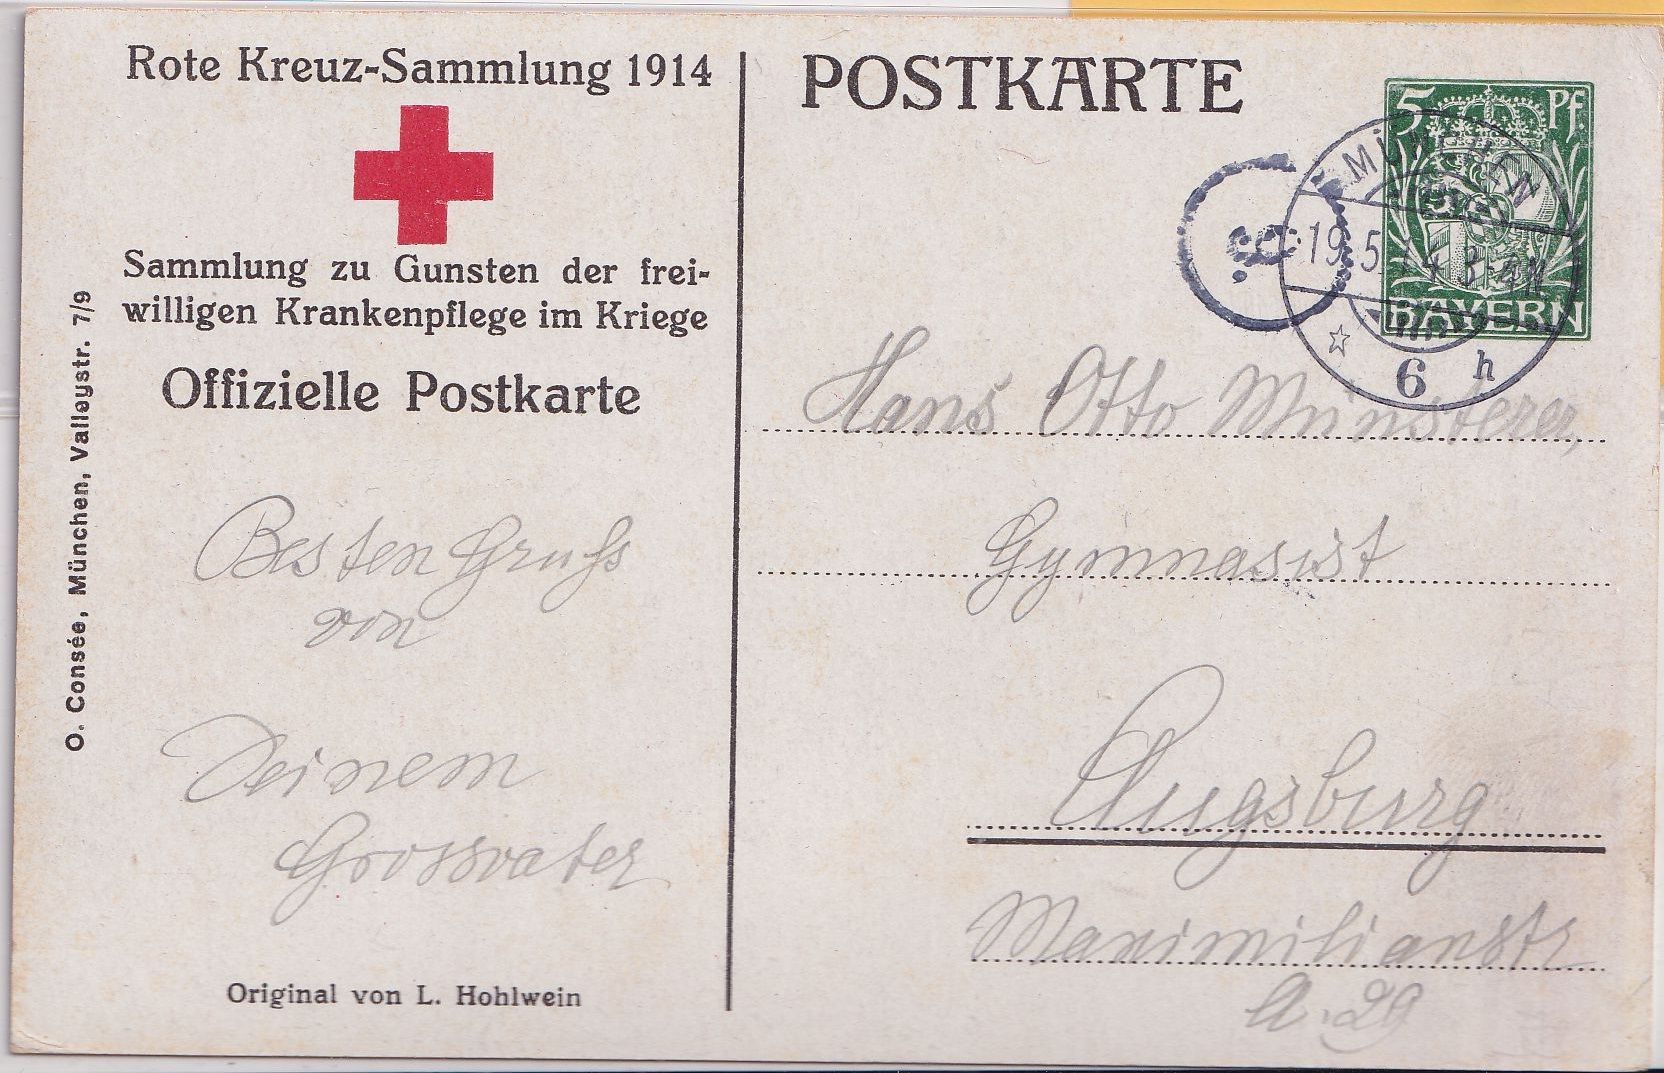 Rote Kreuz-Sammlung 1914
Sammlung zu Gunsten der frei-
willigen Krankenpflege im Kriege
Offizielle Postkarte
O. Consée, München, Valleystr. 7/9
Besten Gruß
von
Deinem
Grossvater
Original von L. Hohlwein
POSTKARTE
5 Pf.
BAYERN
MÜNCHEN
19.5.14 3-4N
6 h
8.
Hans Otto Münsterer,
Gymnasist
Augsburg
Maximilianstr
A. 29